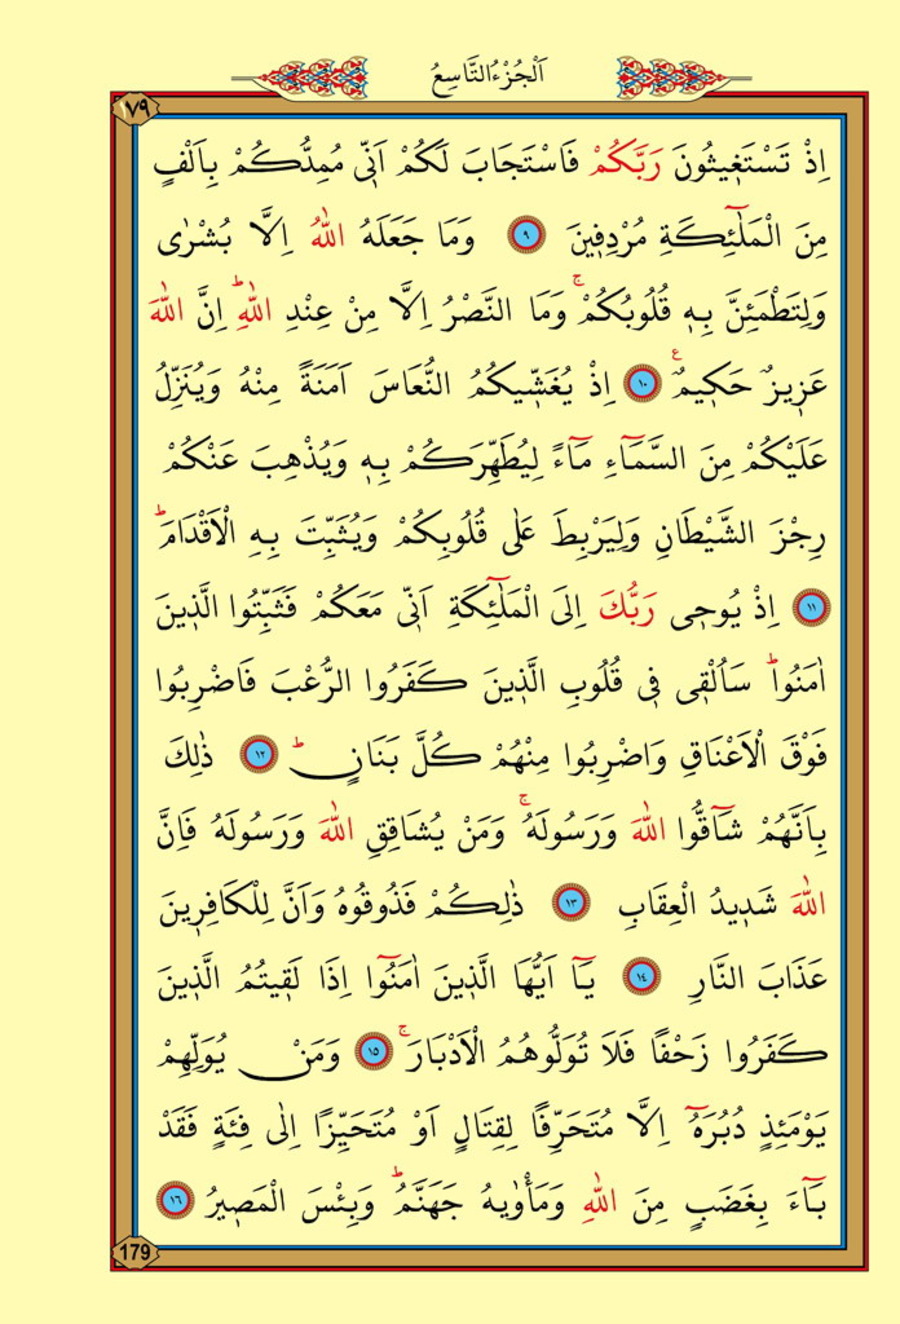 اَلْجُزْءُ التَّاسِعُ
١٧٩
اِذْ تَسْتَغ۪يثُونَ رَبَّكُمْ فَاسْتَجَابَ لَكُمْ اَنّ۪ي مُمِدُّكُمْ بِاَلْفٍ
مِنَ الْمَلٰٓئِكَةِ مُرْدِف۪ينَ ٩ وَمَا جَعَلَهُ اللّٰهُ اِلَّا بُشْرٰى
وَلِتَطْمَئِنَّ بِه۪ قُلُوبُكُمْۚ وَمَا النَّصْرُ اِلَّا مِنْ عِنْدِ اللّٰهِۜ اِنَّ اللّٰهَ
عَز۪يزٌ حَك۪يمٌ۟ ١٠ اِذْ يُغَشّ۪يكُمُ النُّعَاسَ اَمَنَةً مِنْهُ وَيُنَزِّلُ
عَلَيْكُمْ مِنَ السَّمَٓاءِ مَٓاءً لِيُطَهِّرَكُمْ بِه۪ وَيُذْهِبَ عَنْكُمْ
رِجْزَ الشَّيْطَانِ وَلِيَرْبِطَ عَلٰى قُلُوبِكُمْ وَيُثَبِّتَ بِهِ الْاَقْدَامَۜ
١١ اِذْ يُوح۪ي رَبُّكَ اِلَى الْمَلٰٓئِكَةِ اَنّ۪ي مَعَكُمْ فَثَبِّتُوا الَّذ۪ينَ
اٰمَنُواۜ سَاُلْق۪ي ف۪ي قُلُوبِ الَّذ۪ينَ كَفَرُوا الرُّعْبَ فَاضْرِبُوا
فَوْقَ الْاَعْنَاقِ وَاضْرِبُوا مِنْهُمْ كُلَّ بَنَانٍۜ ١٢ ذٰلِكَ
بِاَنَّهُمْ شَٓاقُّوا اللّٰهَ وَرَسُولَهُۚ وَمَنْ يُشَاقِقِ اللّٰهَ وَرَسُولَهُ فَاِنَّ
اللّٰهَ شَد۪يدُ الْعِقَابِ ١٣ ذٰلِكُمْ فَذُوقُوهُ وَاَنَّ لِلْكَافِر۪ينَ
عَذَابَ النَّارِ ١٤ يَٓا اَيُّهَا الَّذ۪ينَ اٰمَنُٓوا اِذَا لَق۪يتُمُ الَّذ۪ينَ
كَفَرُوا زَحْفًا فَلَا تُوَلُّوهُمُ الْاَدْبَارَۚ ١٥ وَمَنْ يُوَلِّهِمْ
يَوْمَئِذٍ دُبُرَهُٓ اِلَّا مُتَحَرِّفًا لِقِتَالٍ اَوْ مُتَحَيِّزًا اِلٰى فِئَةٍ فَقَدْ
بَٓاءَ بِغَضَبٍ مِنَ اللّٰهِ وَمَأْوٰيهُ جَهَنَّمُۜ وَبِئْسَ الْمَص۪يرُ ١٦
179